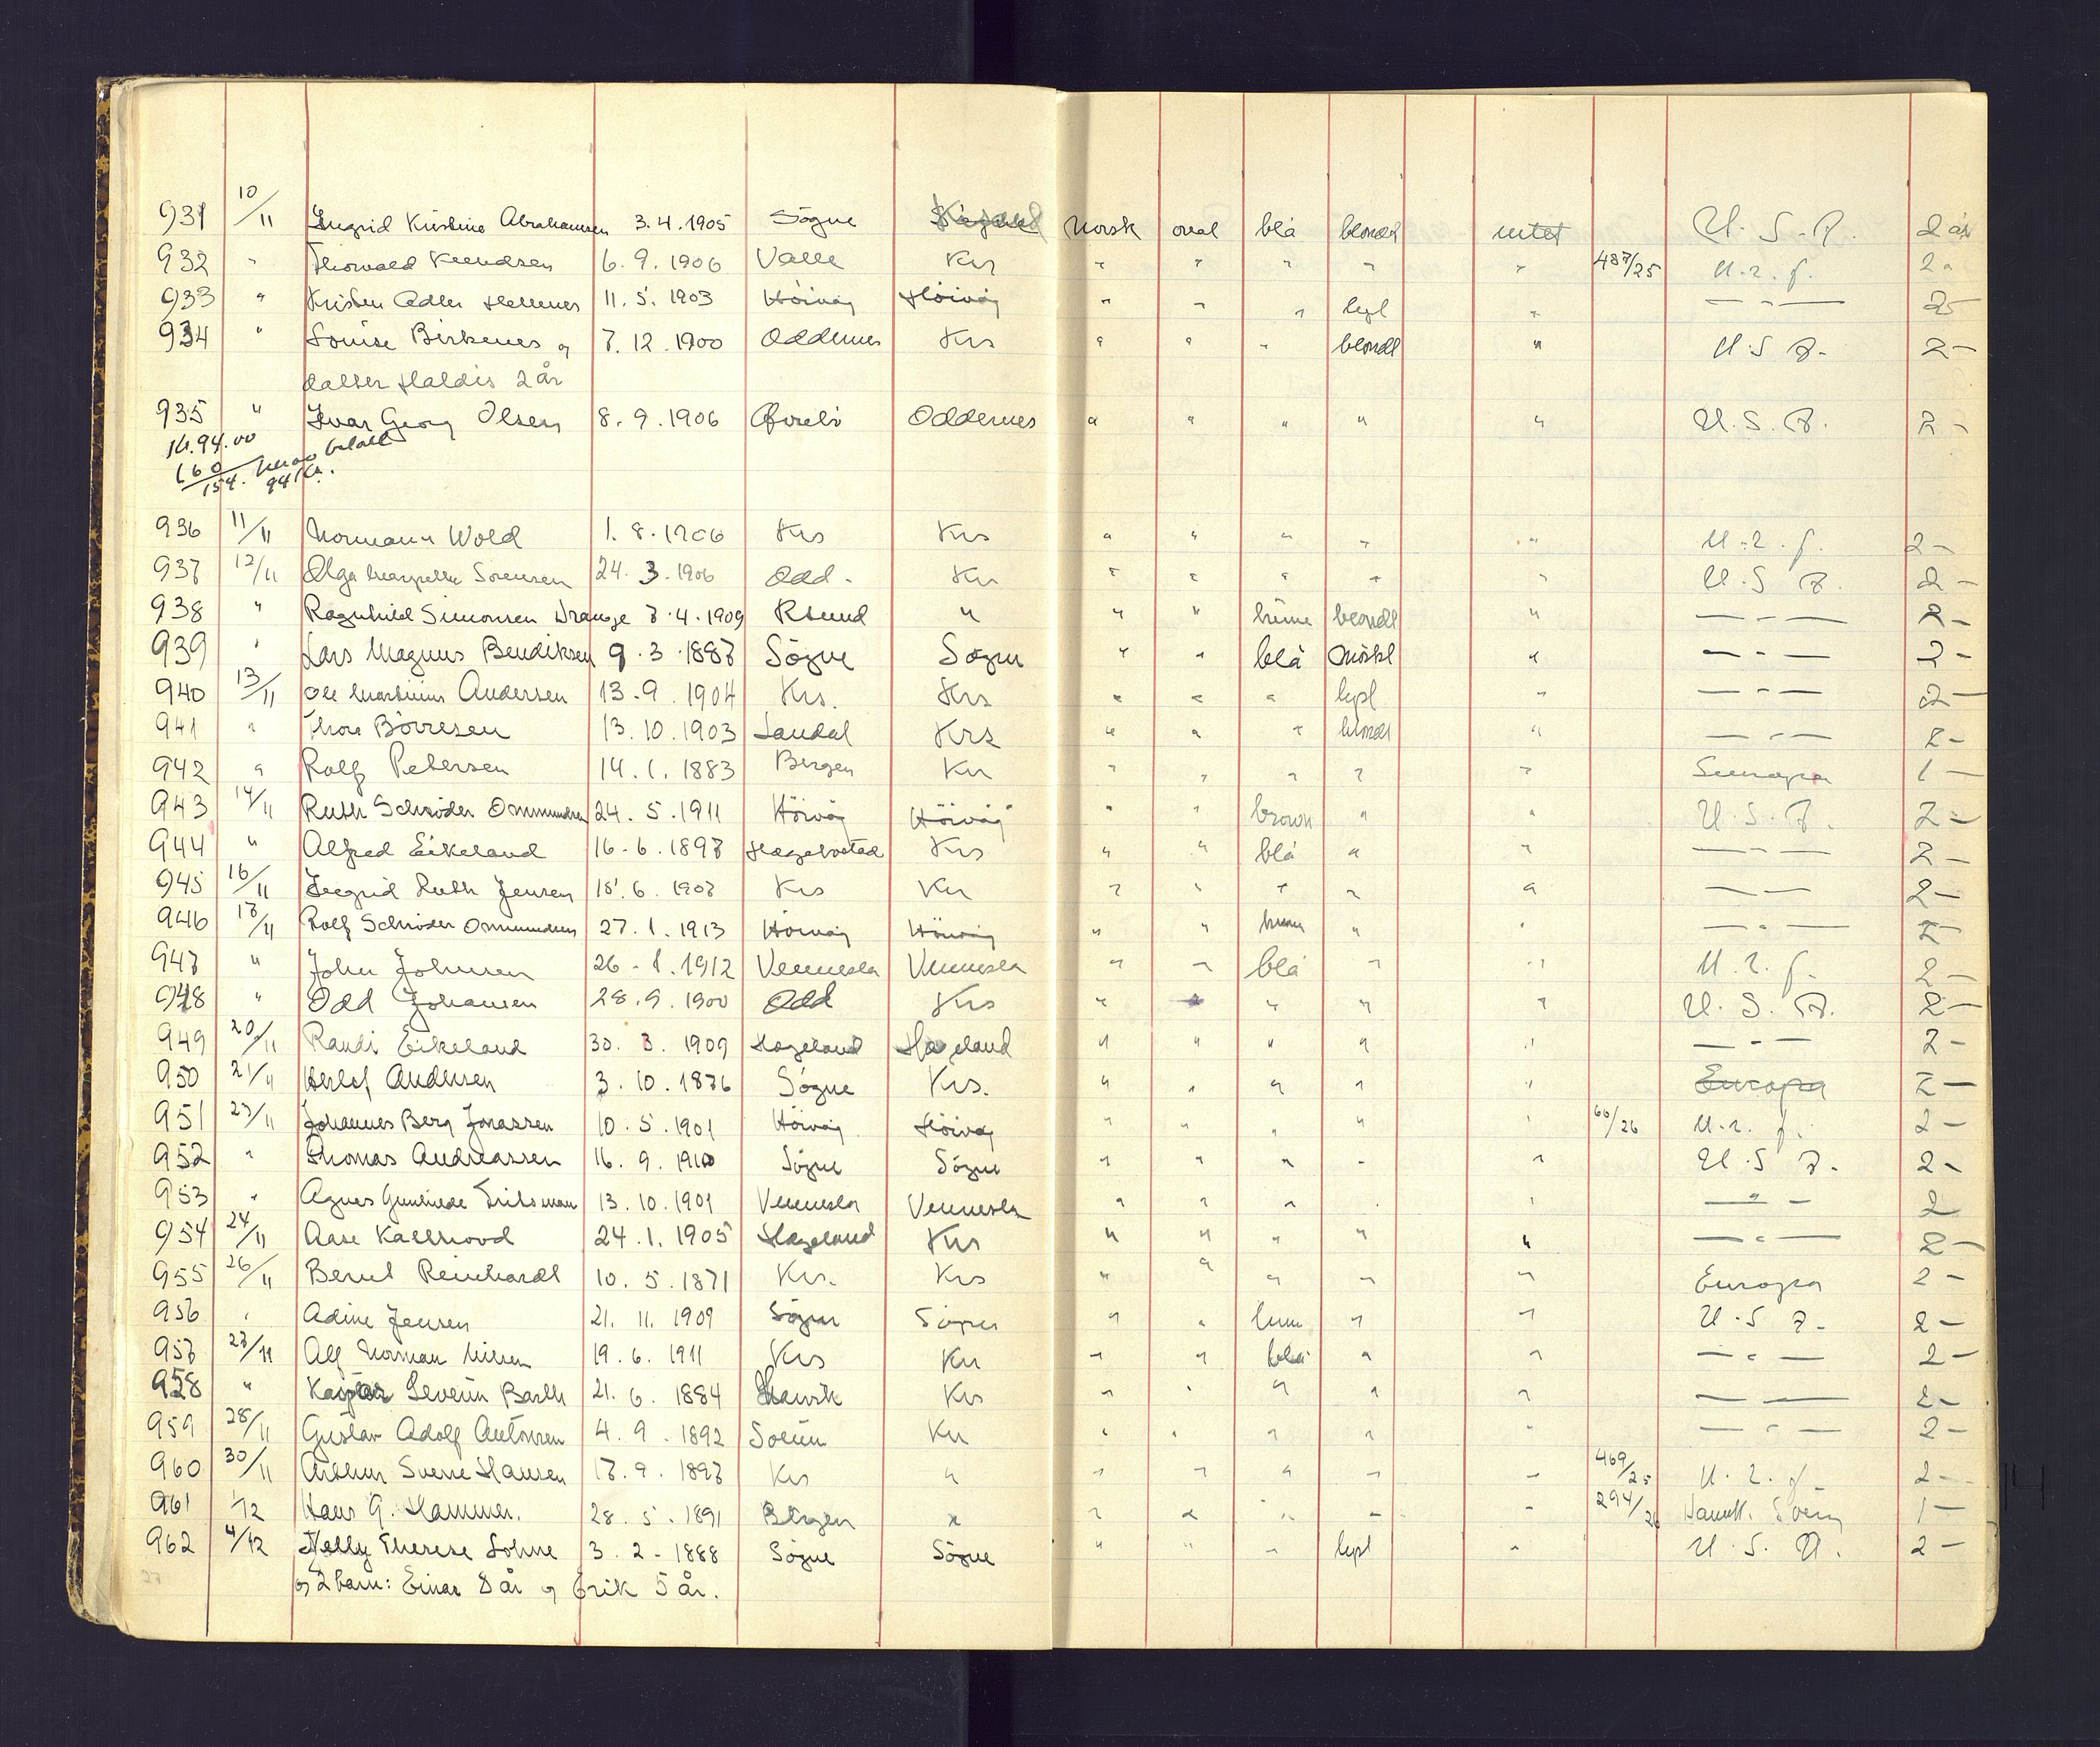 931 10/11 Ingrid Kristine Abrahamsen 3.4.1905 Søgne Norsk oval blå blondt intet U.S.A. 2 år
932 " Thorvald Knudsen 6.9.1906 Valle Krs " " " " " 487/25 U.r.f. 2 "
933 " Kristen Adler 11.5.1903 Höivåg Höivåg " " " lyst " — " — 2 -
934 " Louise Birkenes og 7.12.1900 Oddernes Krs " " " blondt " U.S.A. 2 -
datter Haldis 2 år
935 " Ivar Georg Olsen 8.9.1906 Oddernes " " " " " U.S.A. 2 -
Kr. 94.00
160 betalt
154. 94 Kr.
936 11/11 Normann Wold 1.8.1906 Krs Krs " " " " " U.r.f. 2 -
937 12/11 Olga Sørensen 24.3.1906 Odd. Krs " " " " " U.S.A. 2 -
938 " Ragnhild Simonsen Drange 7.4.1909 " " " blondt " — " — 2 -
939 " Lars Magnus Bendiksen 9.3.1887 Søgne Søgne " " blå mörkt " — " — 2 -
940 13/11 Ole Martinius Andersen 13.9.1904 Krs. Krs " " " lyst " — " — 2 -
941 " Thore Börresen 13.10.1903 Laudal Krs " " " blondt " — " — 2 -
942 " Rolf Petersen 14.1.1883 Bergen Krs " " " " " 1 -
943 14/11 Ruth Schrøder Ommundsen 24.5.1911 Höivåg Höivåg " " brown " " U.S.A. 2 -
944 " Alfred Eikeland 16.6.1897 Hægebostad Krs " " blå " " — " — 2 -
945 16/11 Ingrid Ruth Jensen 15.6.1907 Krs Krs " " " " " — — 2 -
946 17/11 Rolf Schrøder Ommundsen 27.1.1913 Höivåg Höivåg " " brun " " — " — 2 -
947 " John Johnsen 26.1.1912 Vennesla Vennesla " " blå " " U.r.f. 2 -
948 " Odd Johansen 28.9.1900 Odd Krs " " " " " U.S.A. 2 -
949 20/11 Randi Eikeland 30.3.1909 Hægeland Hægeland " " " " " — " — 2 -
950 21/11 Herlof Andersen 3.10.1876 Søgne Krs. " " " " " Europa 2 -
951 23/11 Johannes Berg Jonassen 10.5.1901 Höivåg Höivåg " " " " " 66/26 U.r.f. 2 -
952 " Thomas Andreassen 16.9.1910 Søgne Søgne " " " " " U.S.A. 2 -
953 " Agnes 13.10.1901 Vennesla Vennesla " " " " " — " — 2
954 24/11 Aase Kallhovd 24.1.1905 Hægeland Krs " " " " " — " — 2 -
955 26/11 Bernt Reinhardt 10.5.1871 Krs. Krs " " " " " Europa 2 -
956 " Adine Jensen 21.11.1909 Søgne Søgne " " brun " " U.S.A. 2 -
957 27/11 Alf Norman Nilsen 19.6.1911 Krs Krs " " blå " " — " — 2 -
958 " Kaspar Severin Barth 21.6.1884 Krs " " " " " — — 2 -
959 28/11 Gustav Adolf Antonsen 4.9.1892 Krs " " " " " — " — 2 -
960 30/11 Arthur Sverre Hansen 17.9.1897 Krs " " " " " " 469/25 U.r.f. 2 -
961 1/12 Hans G. Hammer. 28.5.1891 Bergen " " " " " " 294/26 1 -
962 4/12 Nelly Therese Lohne 3.2.1888 Søgne Søgne " " " lyst " U.S.A. 2 -
og 2 barn: Einar 8 år og Erik 5 år.